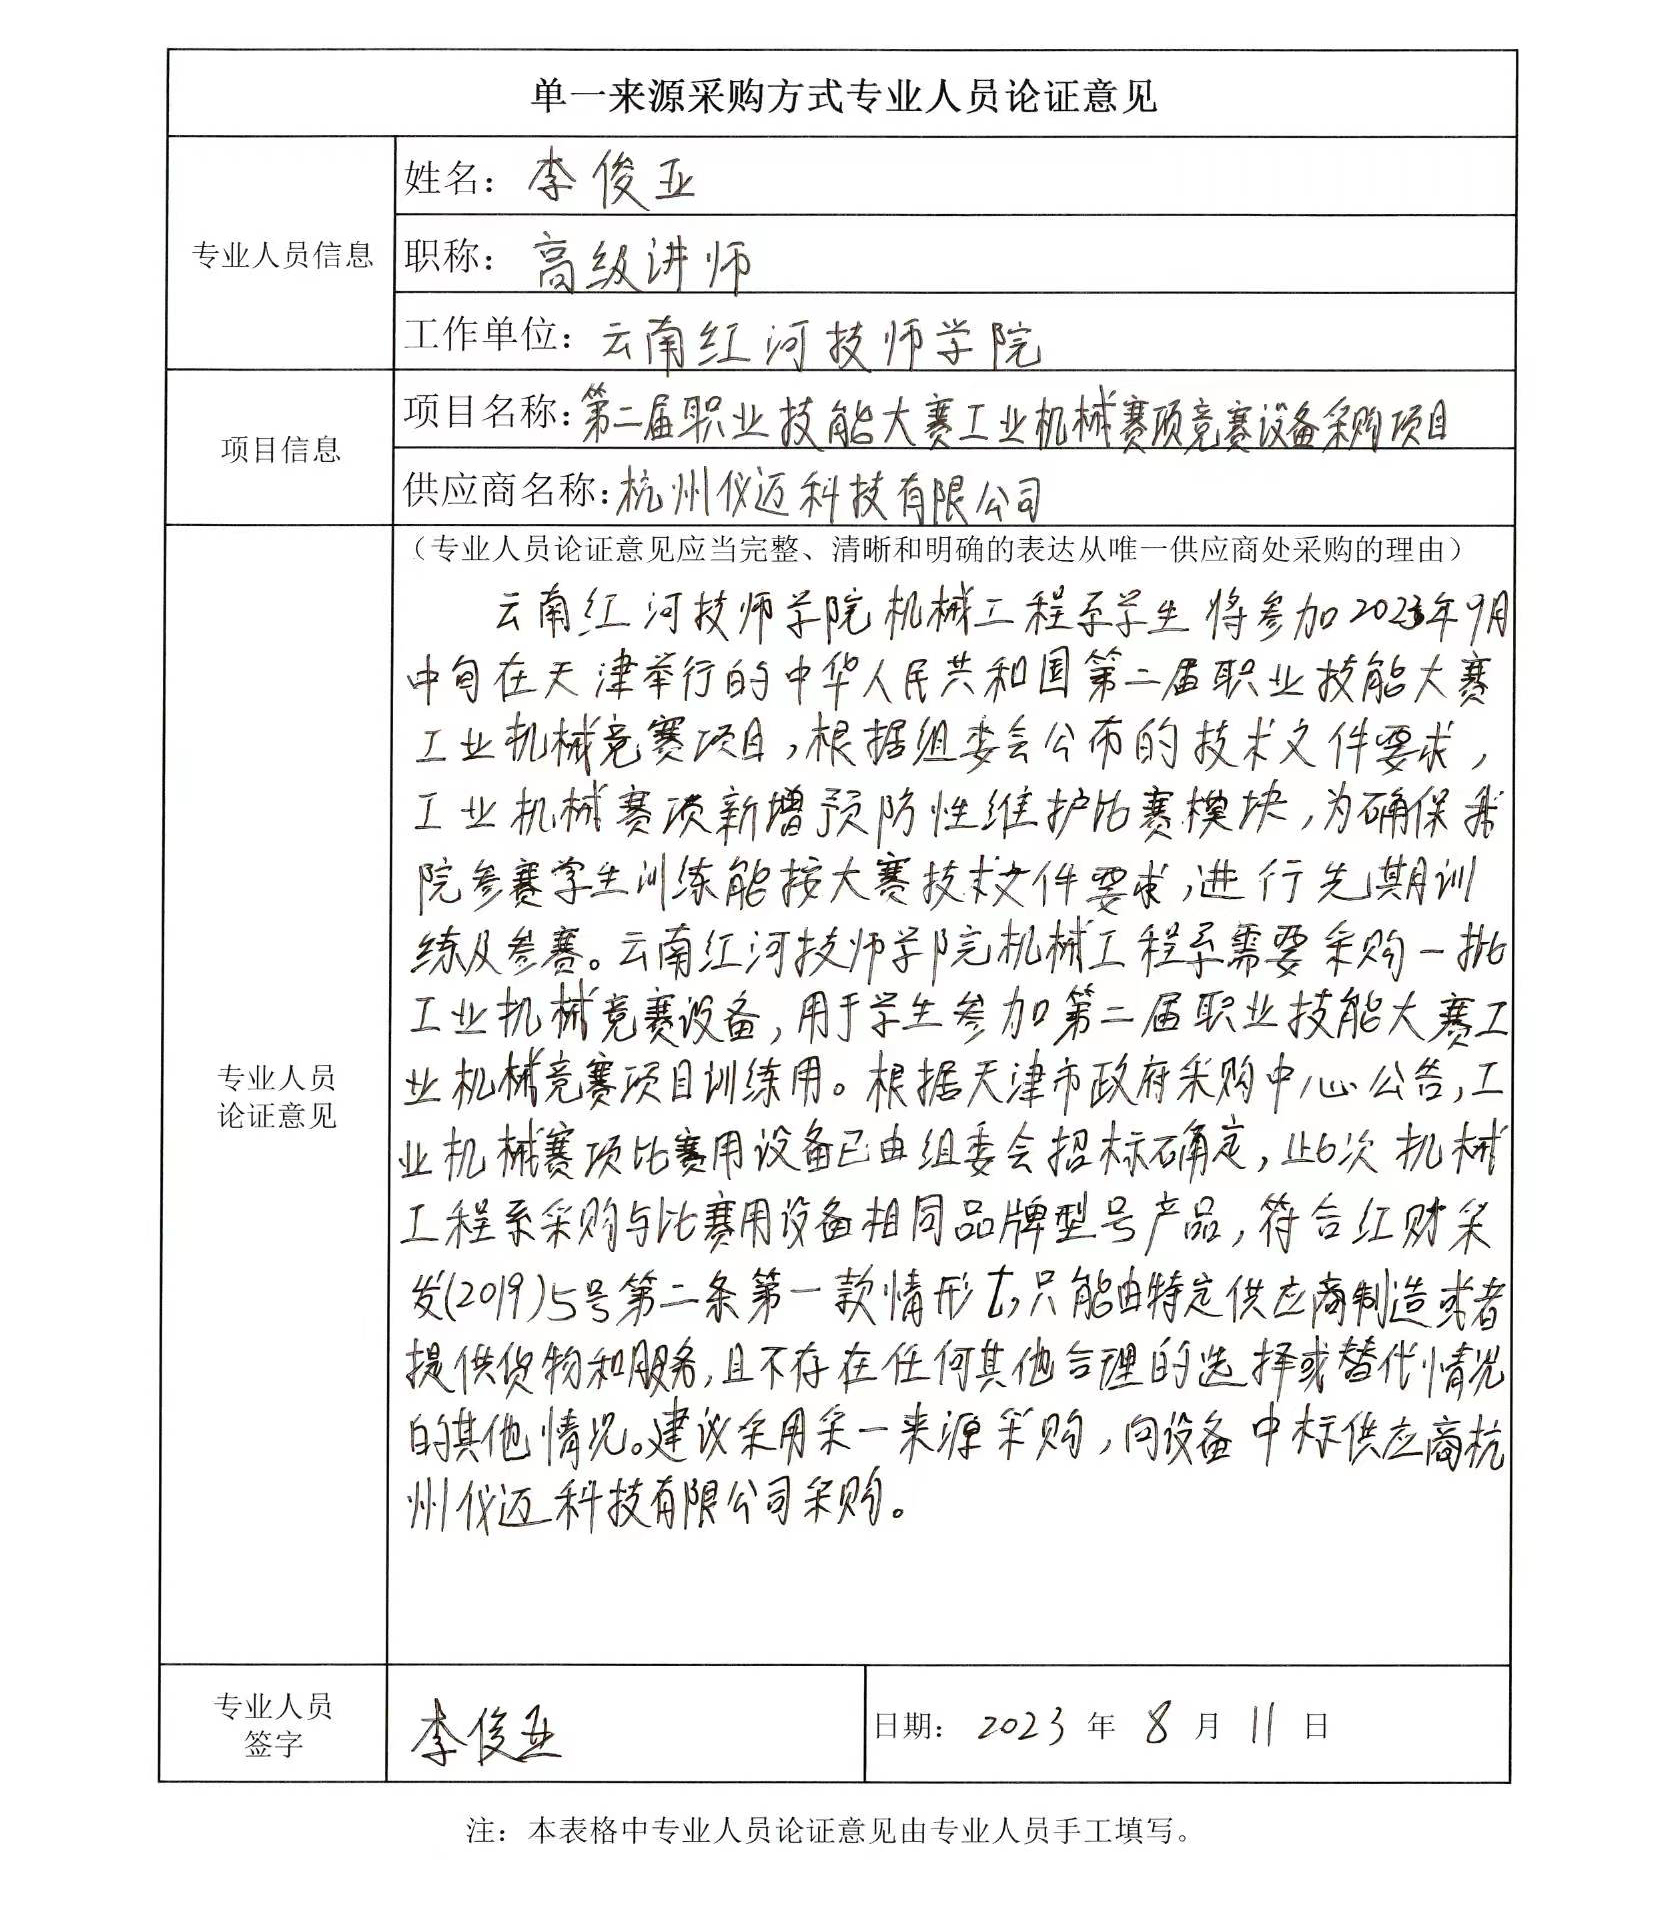 单一来源采购方式专业人员论证意见
专业人员信息
姓名：李俊亚
职称：高级讲师
工作单位：云南红河技师学院
项目信息
项目名称：第二届职业技能大赛工业机械赛项竞赛设备采购项目
供应商名称：杭州仪迈科技有限公司
专业人员
论证意见
（专业人员论证意见应当完整、清晰和明确的表达从唯一供应商处采购的理由）
云南红河技师学院机械工程系学生将参加2023年9月
中旬在天津举行的中华人民共和国第二届职业技能大赛
工业机械竞赛项目，根据组委会公布的技术文件要求，
工业机械赛项新增预防性维护比赛模块，为确保我
院参赛学生训练能按大赛技术文件要求，进行先期训
练及参赛。云南红河技师学院机械工程系需要采购一批
工业机械竞赛设备，用于学生参加第二届职业技能大赛工
业机械竞赛项目训练用。根据天津市政府采购中心公告，工
业机械赛项比赛用设备已由组委会招标确定，此次机械
工程系采购与比赛用设备相同品牌型号产品，符合红财采
发(2019)5号第二条第一款情形七，只能由特定供应商制造或者
提供货物和服务，且不存在任何其他合理的选择或替代情况
的其他情况。建议采用采一来源采购，向设备中标供应商杭
州仪迈科技有限公司采购。
专业人员
签字
李俊亚
日期：2023年8月11日
注：本表格中专业人员论证意见由专业人员手工填写。